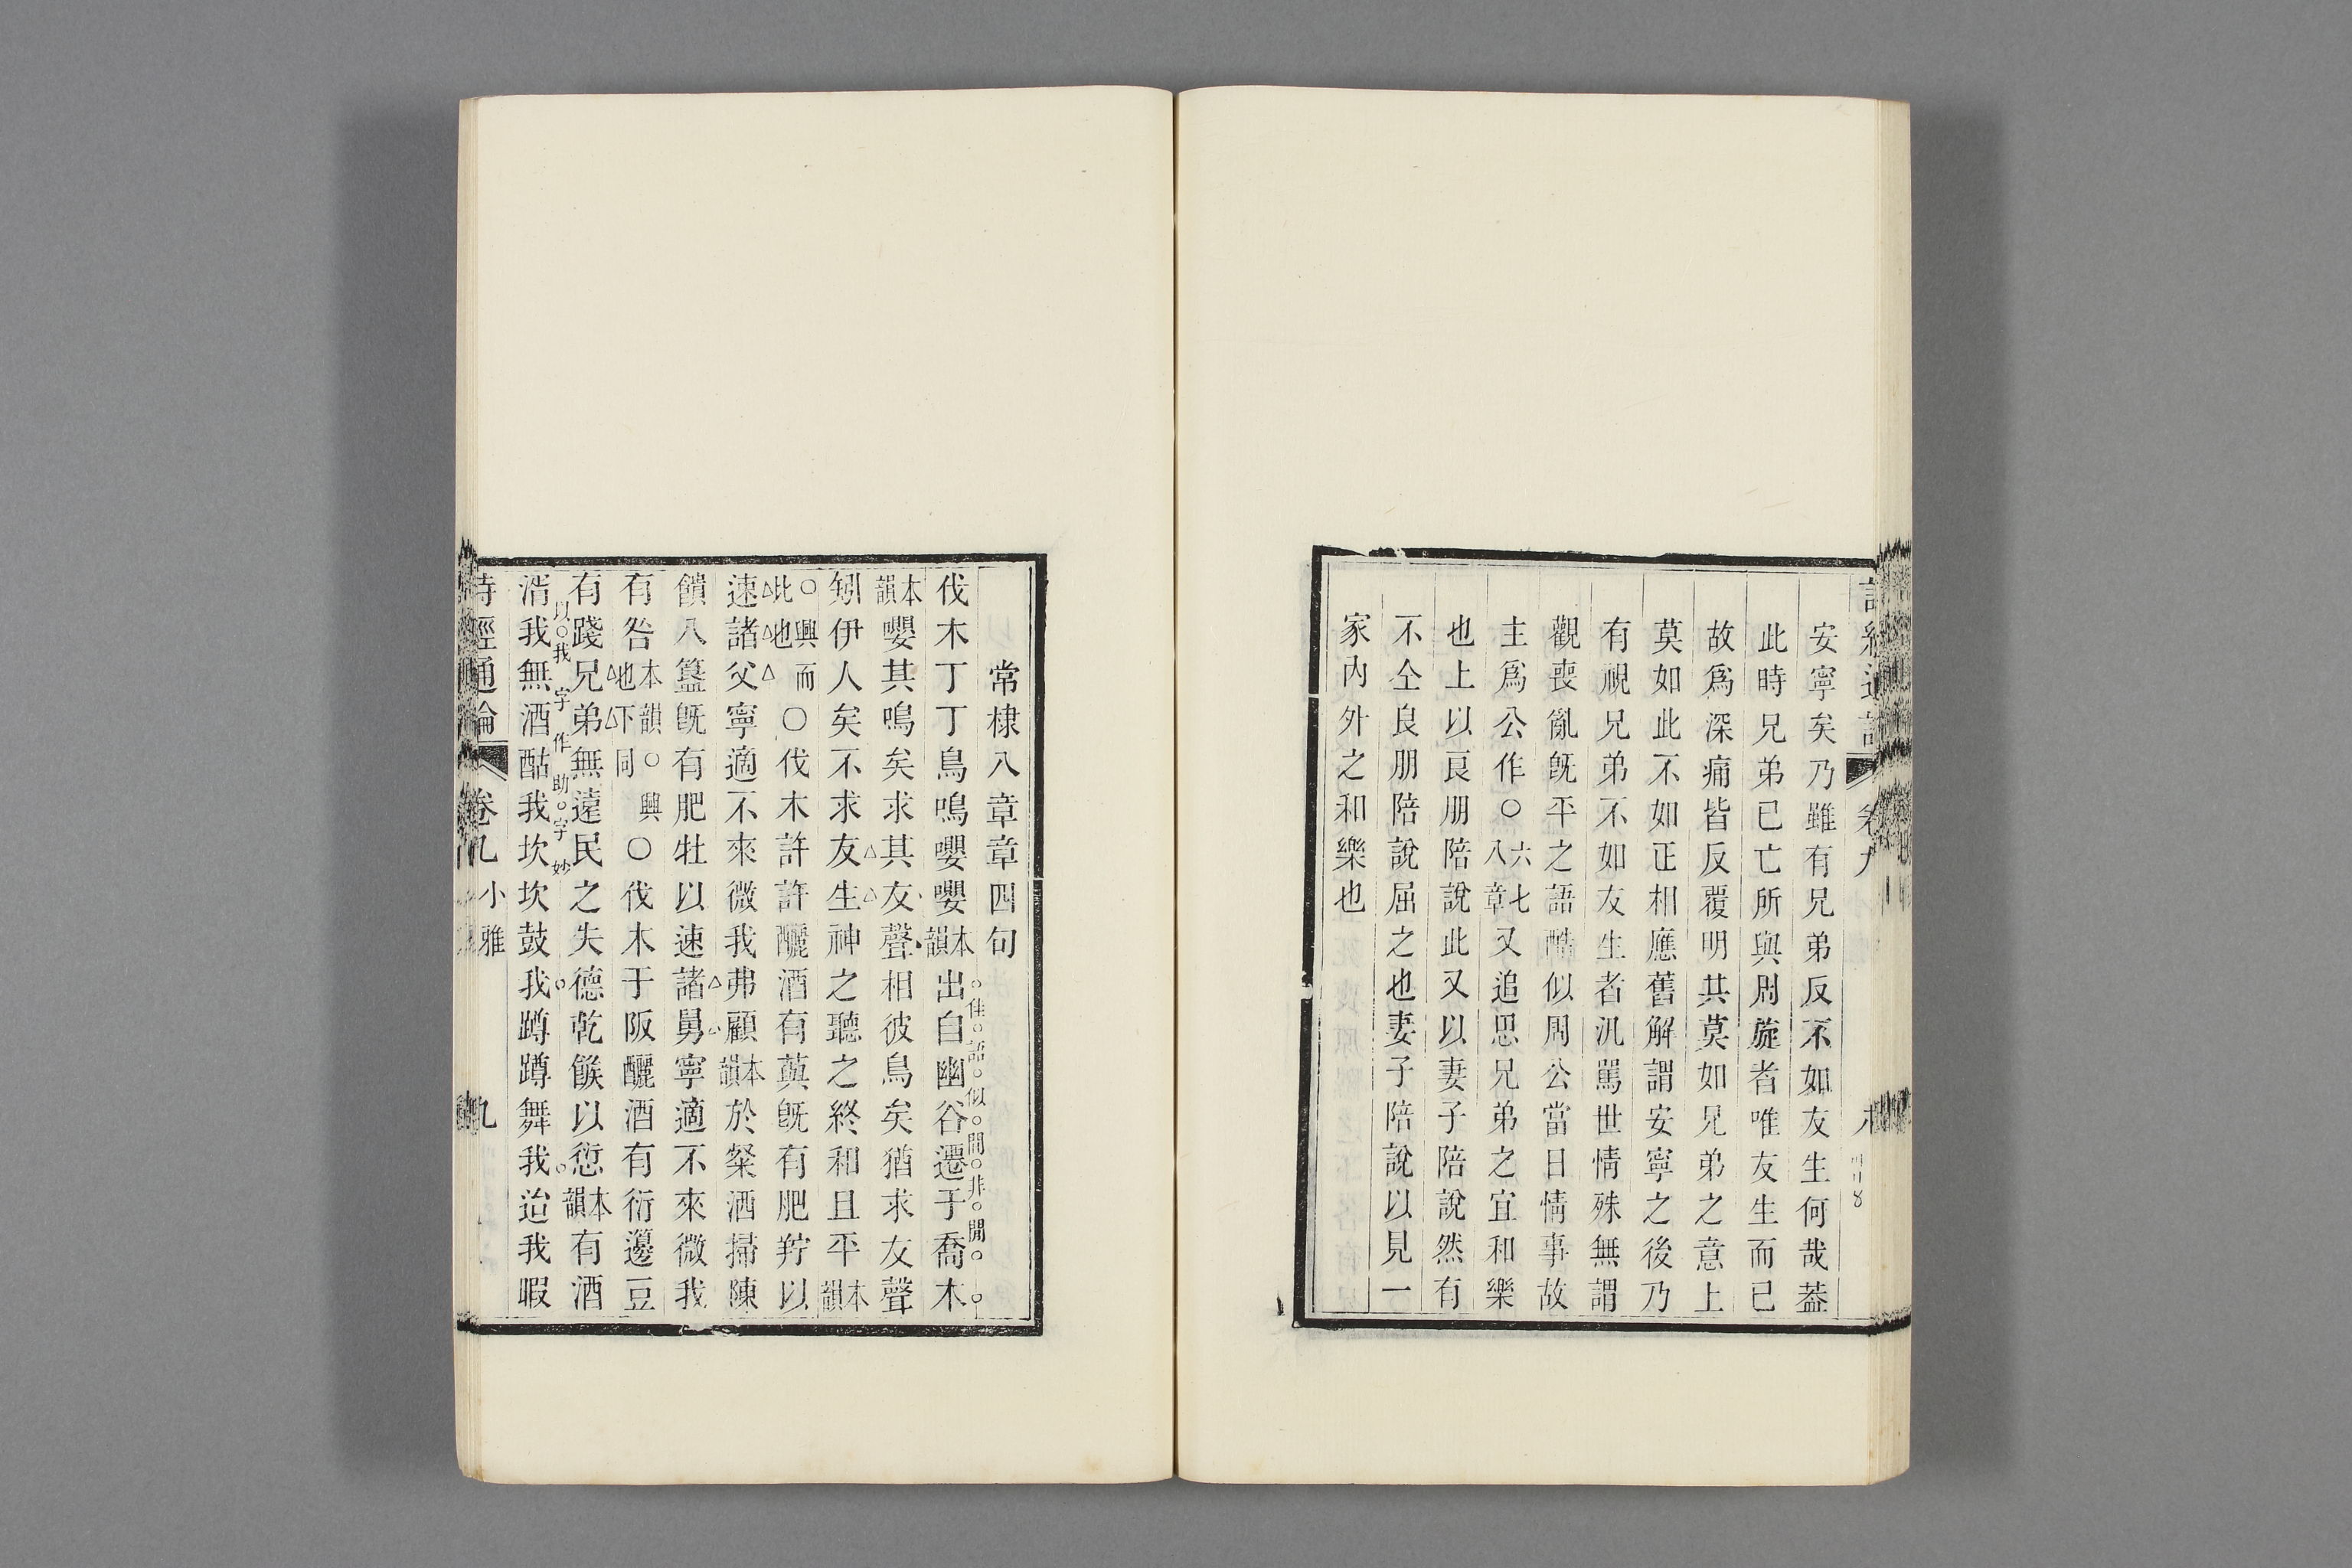 安寧矣乃雖有兄弟反不如友生何哉葢
此時兄弟已亡所與周旋者唯友生而已
故爲深痛皆反覆明其莫如兄弟之意上
莫如此不如正相應舊解謂安寧之後乃
有視兄弟不如友生者汎罵世情殊無謂
觀喪亂既平之語酷似周公當日情事故
主爲公作○六七八章又追思兄弟之宜和樂
也上以良朋陪說此又以妻子陪說然有
不仝良朋陪說屈之也妻子陪說以見一
家內外之和樂也
常棣八章章四句
佳語似閒非閒
伐木丁丁鳥鳴嚶嚶本韻出自幽谷遷于喬木
本韻嚶其鳴矣求其友聲相彼鳥矣猶求友聲
矧伊人矣不求友生神之聽之終和且平本韻
○興而比也○伐木許許釃酒有藇既有肥羜以
速諸父寧適不來微我弗顧本韻於粲洒掃陳
饋八簋既有肥牡以速諸舅寧適不來微我
有咎本韻○興也下同○伐木于阪釃酒有衍籩豆
有踐兄弟無遠民之失德乾餱以愆本韻有酒
以我字作助字妙
湑我無酒酤我坎坎鼓我蹲蹲舞我迨我暇
詩經通論 卷九 小雅 九